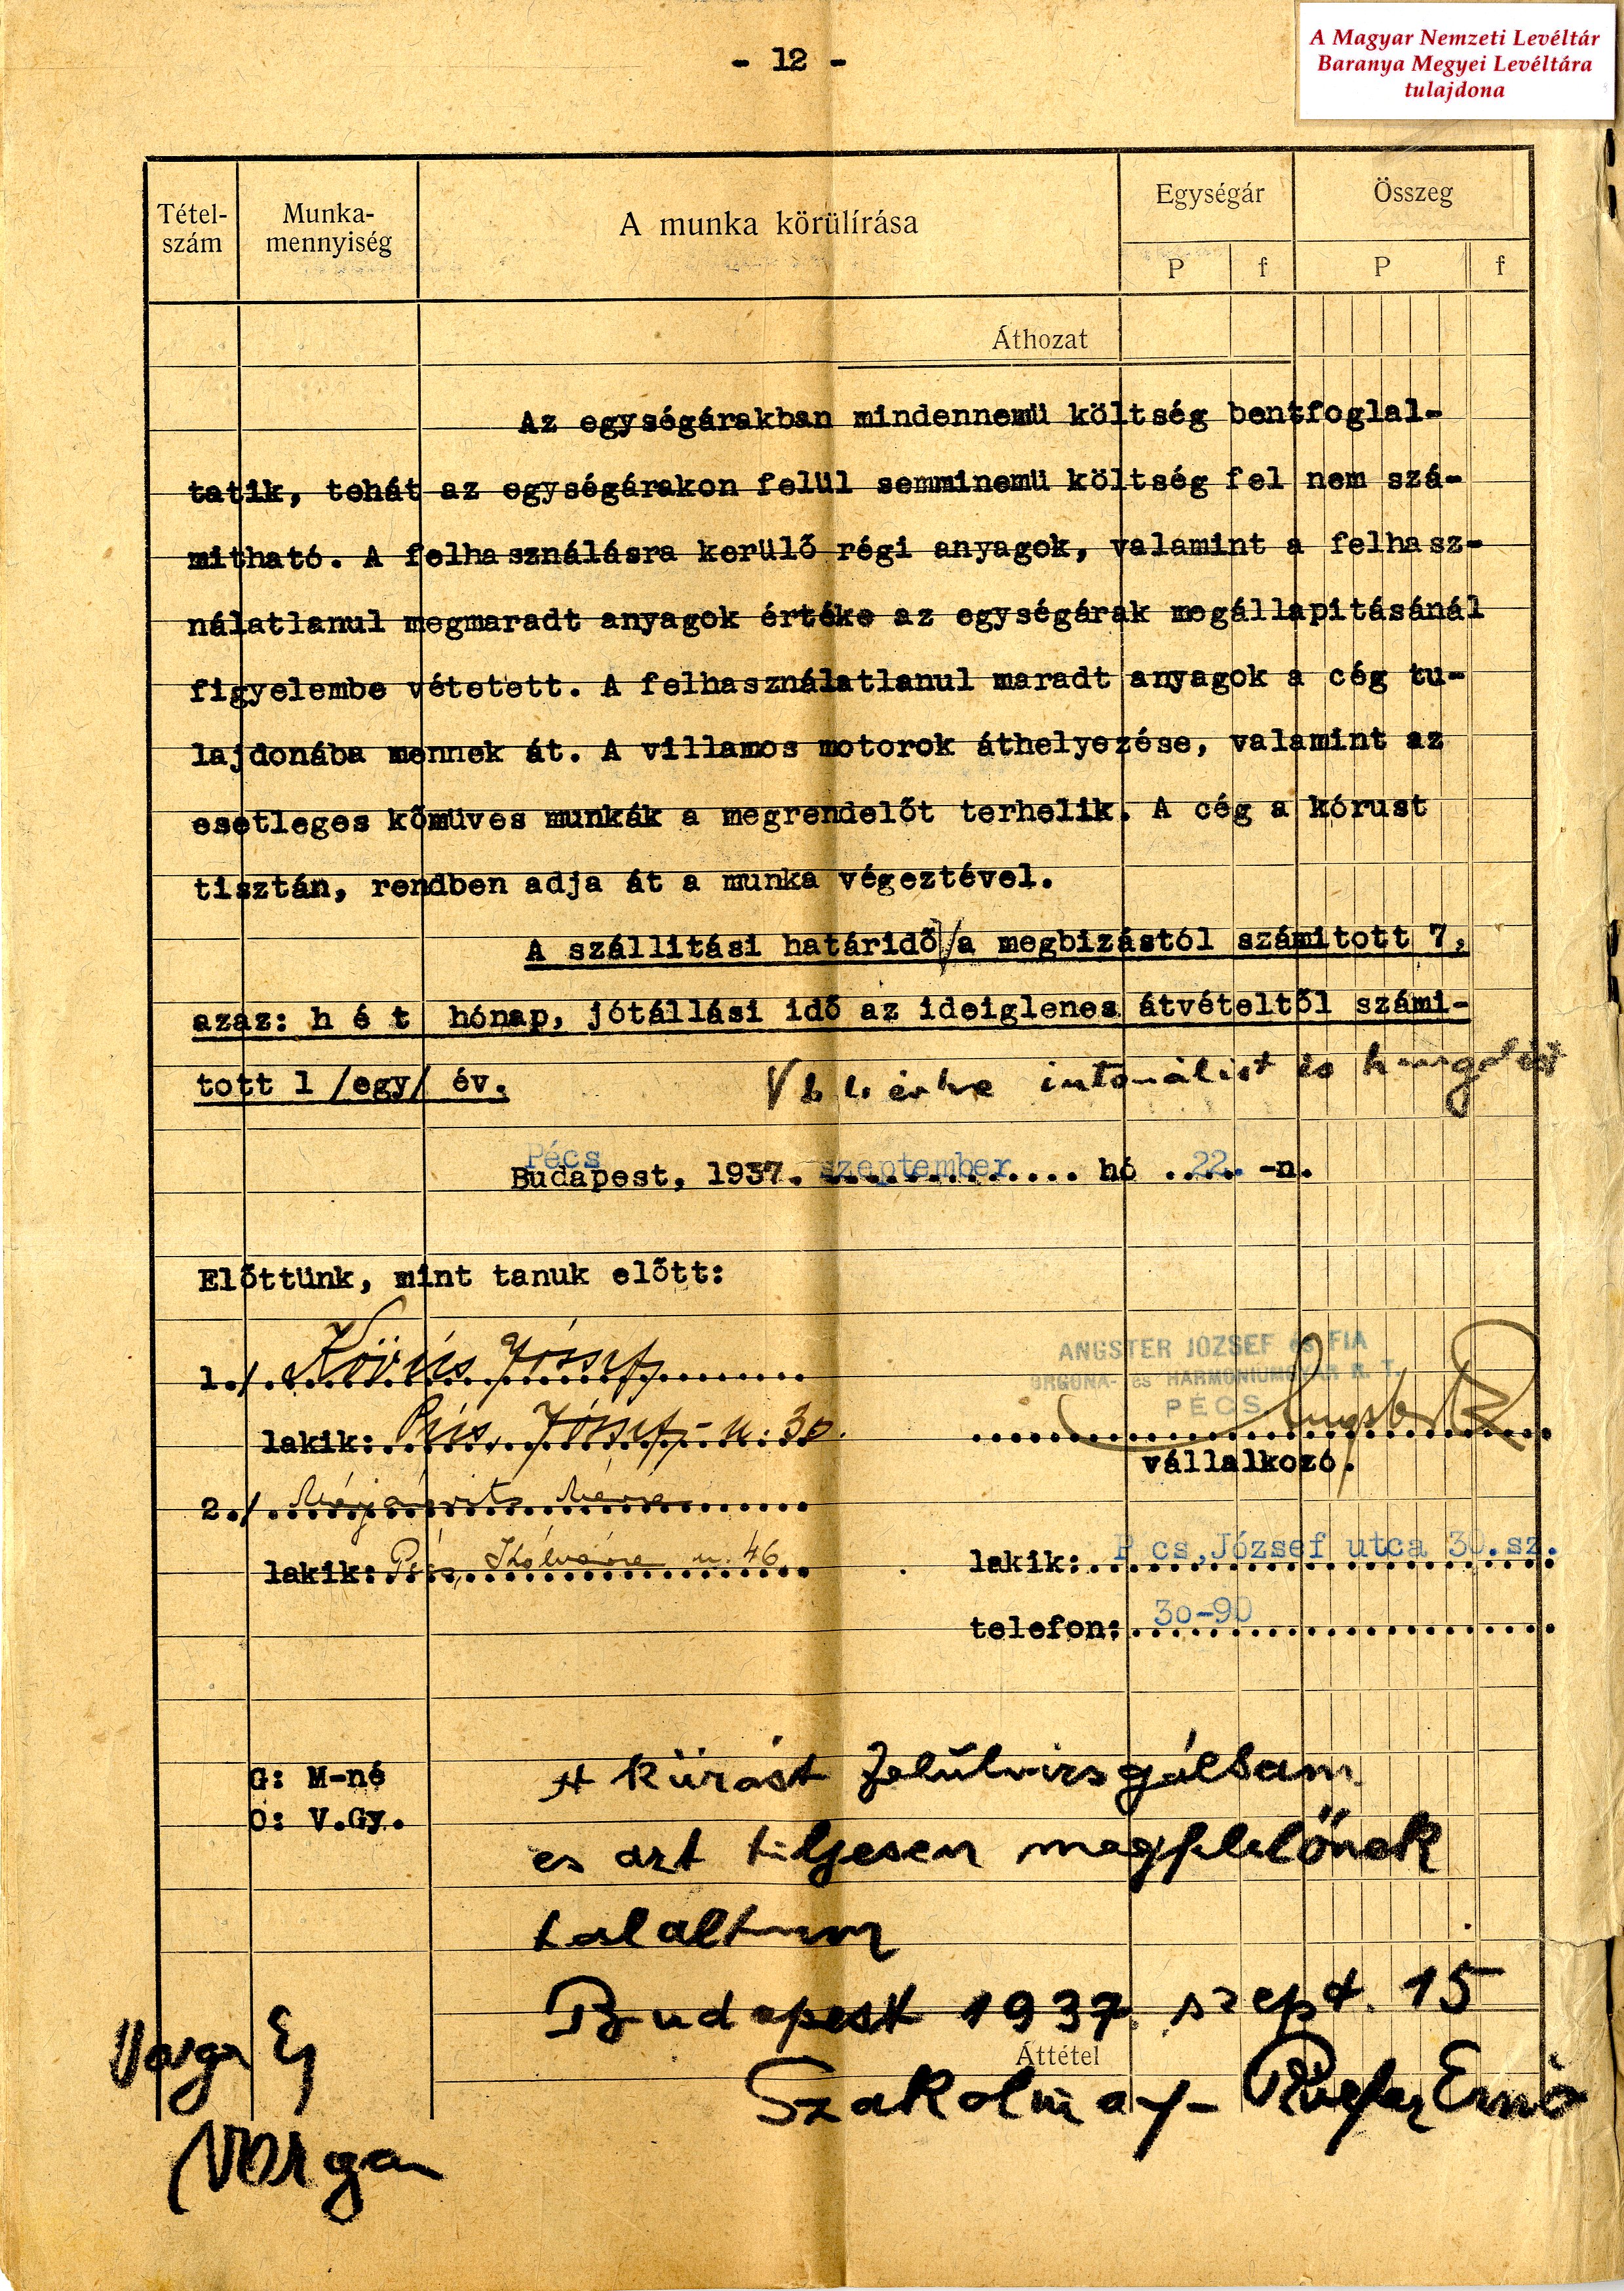 - 12 -
A Magyar Nemzeti Levéltár
Baranya Megyei Levéltára
tulajdona
Tétel-
szám
Munka-
mennyiség
A munka körülírása
Egységár
Összeg
P f P f
Áthozat
Az egységárakban mindennemü költség bentfoglal-
tatik, tehát az egységárakon felül semminemü költség fel nem szá-
mitható. A felhasználásra kerülő régi anyagok, valamint a felhasz-
nálatlanul megmaradt anyagok értéke az egységárak megállapitásánál
figyelembe vétetett. A felhasználatlanul maradt anyagok a cég tu-
lajdonába mennek át. A villamos motorok áthelyezése, valamint az
esetleges kőmüves munkák a megrendelőt terhelik. A cég a kórust
tisztán, rendben adja át a munka végeztével.
A szállitási határidő √a megbizástól számitott 7,
azaz: h é t hónap, jótállási idő az ideiglenes átvételtől számi-
tott 1 /egy/ év.
√ intonálást és hangolást
Pécs
Budapest, 1937. szeptember hó 22. -n.
Előttünk, mint tanuk előtt:
1./ József
lakik: Pécs, József- u. 30.
ANGSTER JÓZSEF és FIA
ORGONA- és HARMÓNIUMGYÁR R. T.
PÉCS
Angster
vállalkozó.
2./
lakik: Pécs, u. 46
lakik: P cs, József utca 30.sz.
telefon: 30-90
G: M-né
O: V.Gy.
A kiirást felülvizsgáltam
es azt teljesen megfelelőnek
talaltam
Budapest 1937. szept. 15
Áttétel
Varga
Szakolczay-Riegler Ernő
Varga